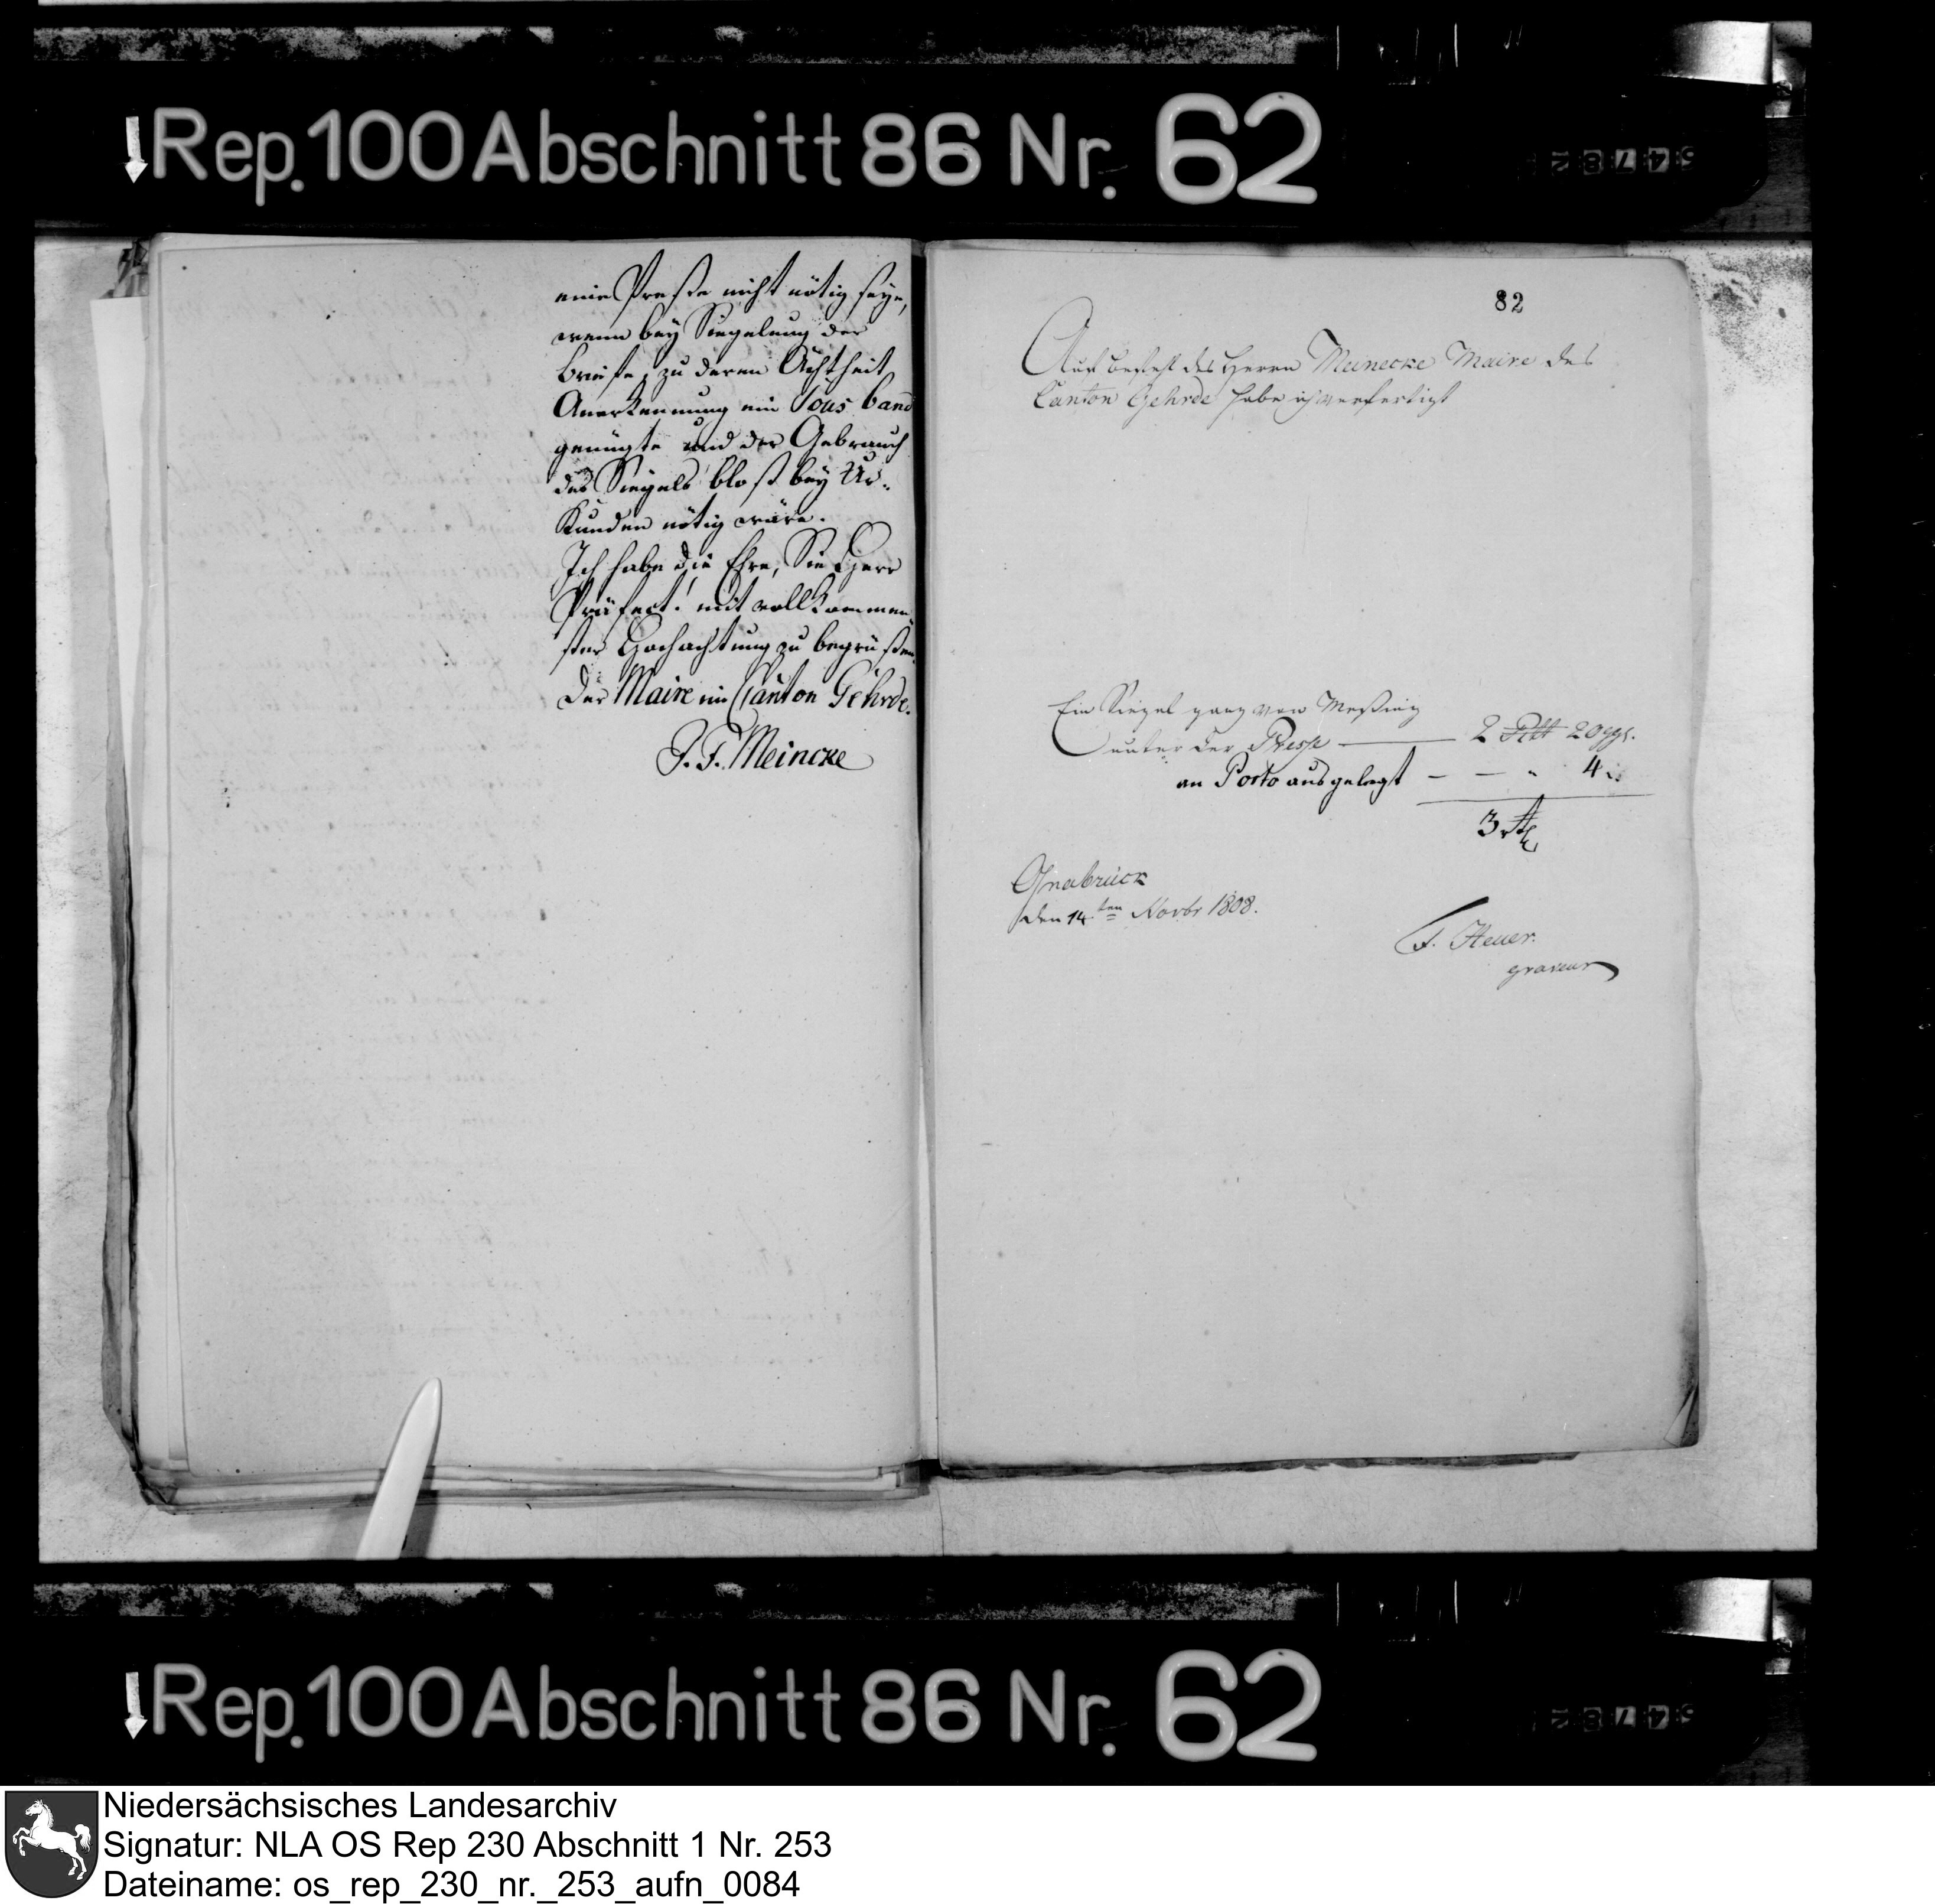 Rep. 100 Abschnitt 86 Nr. 62
eine Preße nicht nötig seye,
wenn bey Siegelung der
Briefe, zu deren Ächtheit
Anerkennung ein Sous band
genügte und der Gebrauch
des Siegels bloß bey Ur-
kunden nötig wäre.
Ich habe die Ehre, Sie Herr
Präfect! mit vollkommen
ster Hochachtung zu begrüßen.
Der Maire im Canton Gehrde.
J. F. Meincke
82
Auf befehl des Herrn Meinecke Maire des
Canton Gehrde habe ich verfertigt
Ein Siegel ganz von Meßing
unter der Presse — 2 20 ggr.
an Porto ausgelegt - - " 4
3 rtl
Osnabrück
den 14ten Novbr 1808.
F. Heuer.
graveur
Rep. 100 Abschnitt 86 Nr. 62
Niedersächsisches Landesarchiv
Signatur: NLA OS Rep 230 Abschnitt 1 Nr. 253
Dateiname: os_rep_230_nr._253_aufn_0084